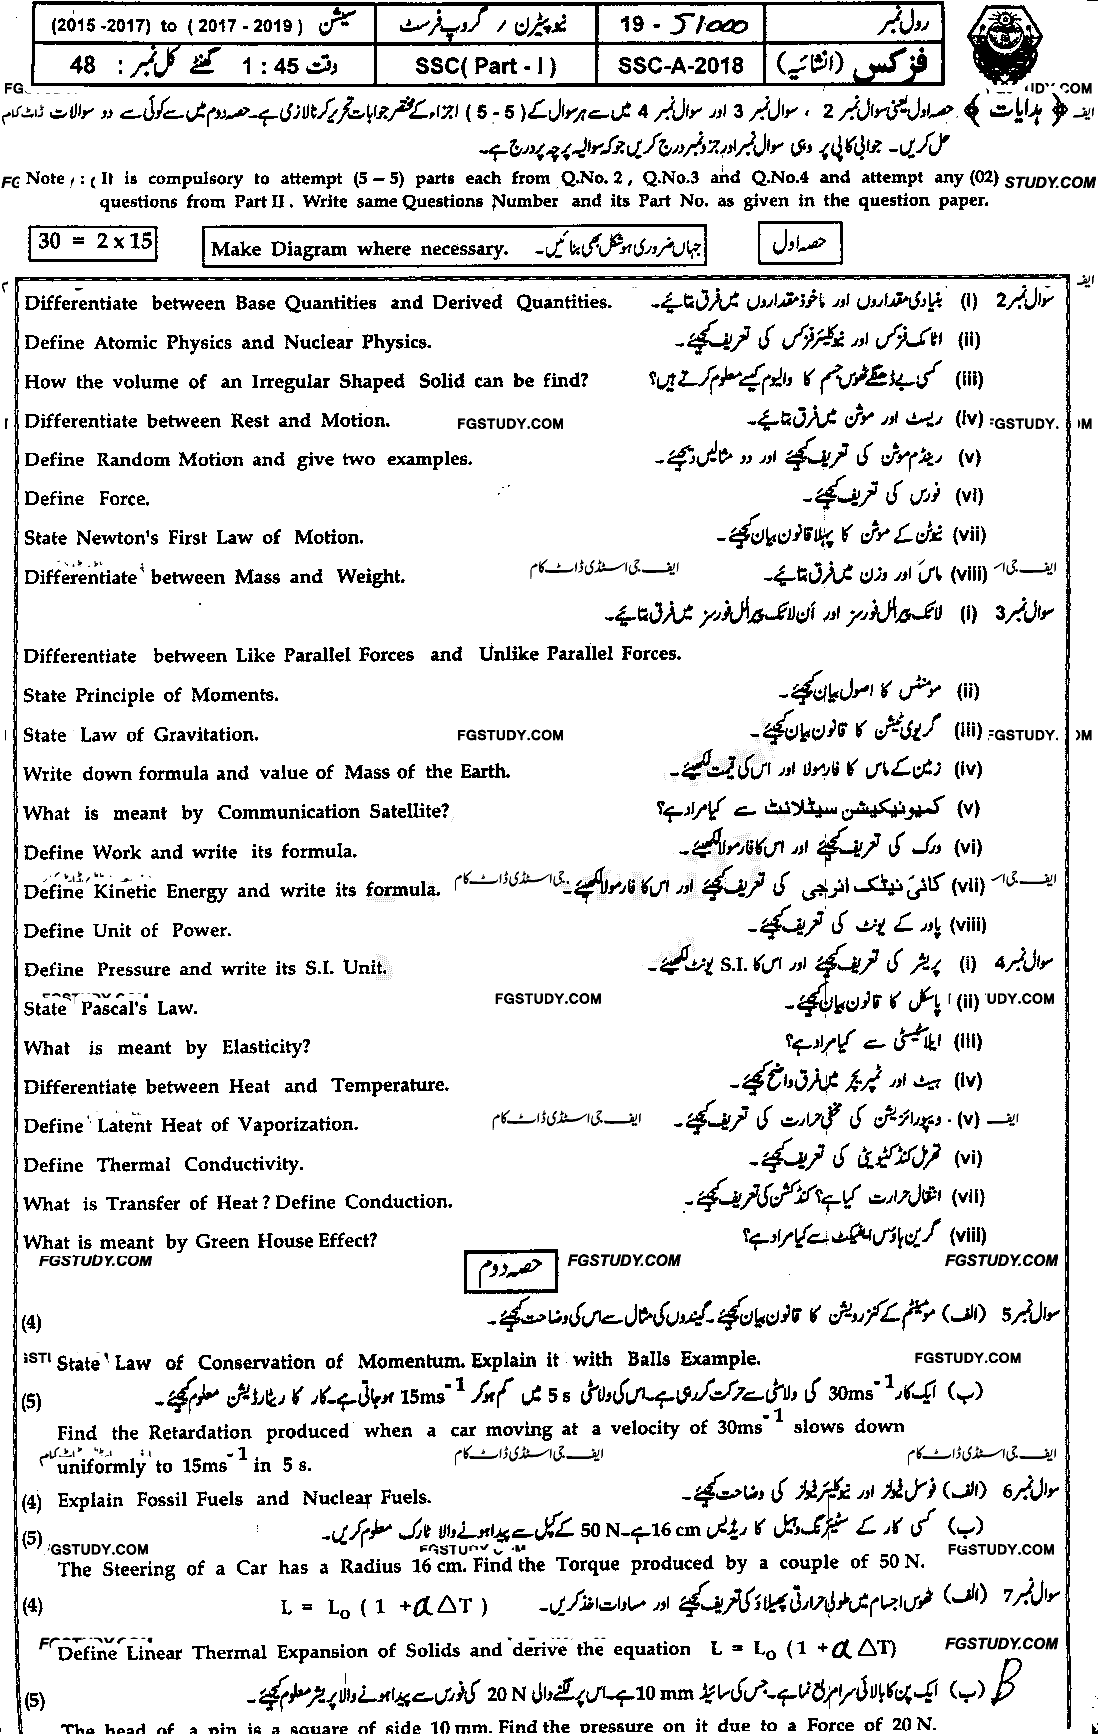 (2015 -2017) to (2017 - 2019) سیشن نیو پیٹرن / گروپ فرسٹ 19 - 51000 رول نمبر
وقت 1 : 45 گھنٹے کل نمبر : 48 SSC( Part - I ) SSC-A-2018 فزکس (انشائیہ)
﴿ ہدایات ﴾ حصہ اول یعنی سوال نمبر 2 ، سوال نمبر 3 اور سوال نمبر 4 میں سے ہر سوال کے (5 - 5) اجزاء کے مختصر جوابات تحریر کرنا لازمی ہے۔ حصہ دوم میں سے کوئی سے دو سوالات
حل کریں۔ جوابی کاپی پر وہی سوال نمبر اور جزو نمبر درج کریں جو کہ سوالیہ پرچہ پر درج ہے۔
Note : It is compulsory to attempt (5 – 5) parts each from Q.No. 2 , Q.No.3 and Q.No.4 and attempt any (02) STUDY.COM
questions from Part II . Write same Questions Number and its Part No. as given in the question paper.
30 = 2 x 15 Make Diagram where necessary. جہاں ضروری ہو شکل بھی بنائیں۔ حصہ اول
سوال نمبر 2 (i) بنیادی مقداروں اور ماخوذ مقداروں میں فرق بتائیے۔ Differentiate between Base Quantities and Derived Quantities.
(ii) اٹامک فزکس اور نیوکلیئر فزکس کی تعریف کیجئے۔ Define Atomic Physics and Nuclear Physics.
(iii) کسی بے ڈھنگے ٹھوس جسم کا والیوم کیسے معلوم کرتے ہیں؟ How the volume of an Irregular Shaped Solid can be find?
(iv) ریسٹ اور موشن میں فرق بتائیے۔ FGSTUDY.COM Differentiate between Rest and Motion.
(v) رینڈم موشن کی تعریف کیجئے اور دو مثالیں دیجئے۔ Define Random Motion and give two examples.
(vi) فورس کی تعریف کیجئے۔ Define Force.
(vii) نیوٹن کے موشن کا پہلا قانون بیان کیجئے۔ State Newton's First Law of Motion.
(viii) ماس اور وزن میں فرق بتائیے۔ ایف جی اسٹڈی ڈاٹ کام Differentiate between Mass and Weight.
سوال نمبر 3 (i) لائک پیرالل فورسز اور اَن لائک پیرالل فورسز میں فرق بتائیے۔
Differentiate between Like Parallel Forces and Unlike Parallel Forces.
(ii) مومنٹس کا اصول بیان کیجئے۔ State Principle of Moments.
(iii) گریوی ٹیشن کا قانون بیان کیجئے۔ FGSTUDY.COM State Law of Gravitation.
(iv) زمین کے ماس کا فارمولا اور اس کی قیمت لکھیئے۔ Write down formula and value of Mass of the Earth.
(v) کمیونیکیشن سیٹلائٹ سے کیا مراد ہے؟ What is meant by Communication Satellite?
(vi) ورک کی تعریف کیجئے اور اس کا فارمولا لکھیئے۔ Define Work and write its formula.
(vii) کائی نیٹک انرجی کی تعریف کیجئے اور اس کا فارمولا لکھیئے۔ جی اسٹڈی ڈاٹ کام Define Kinetic Energy and write its formula.
(viii) پاور کے یونٹ کی تعریف کیجئے۔ Define Unit of Power.
سوال نمبر 4 (i) پریشر کی تعریف کیجئے اور اس کا S.I. یونٹ لکھیئے۔ Define Pressure and write its S.I. Unit.
(ii) پاسکل کا قانون بیان کیجئے۔ FGSTUDY.COM State Pascal's Law.
(iii) ایلاسٹیسٹی سے کیا مراد ہے؟ What is meant by Elasticity?
(iv) ہیٹ اور ٹمپریچر میں فرق واضح کیجئے۔ Differentiate between Heat and Temperature.
(v) ویپورائزیشن کی مخفی حرارت کی تعریف کیجئے۔ ایف جی اسٹڈی ڈاٹ کام Define Latent Heat of Vaporization.
(vi) تھرمل کنڈکٹیویٹی کی تعریف کیجئے۔ Define Thermal Conductivity.
(vii) انتقال حرارت کیا ہے؟ کنڈکشن کی تعریف کیجئے۔ What is Transfer of Heat ? Define Conduction.
(viii) گرین ہاؤس ایفیکٹ سے کیا مراد ہے؟ What is meant by Green House Effect?
FGSTUDY.COM حصہ دوم FGSTUDY.COM FGSTUDY.COM
سوال نمبر 5 (الف) مومینٹم کے کنزرویشن کا قانون بیان کیجئے۔ گیندوں کی مثال سے اس کی وضاحت کیجئے۔ (4)
State Law of Conservation of Momentum. Explain it with Balls Example. FGSTUDY.COM
(ب) ایک کار 30ms⁻¹ کی ولاسٹی سے حرکت کر رہی ہے۔ اس کی ولاسٹی 5 s میں کم ہو کر 15ms⁻¹ ہو جاتی ہے۔ کار کا ریٹارڈیشن معلوم کیجئے۔ (5)
Find the Retardation produced when a car moving at a velocity of 30ms⁻¹ slows down
uniformly to 15ms⁻¹ in 5 s. ایف جی اسٹڈی ڈاٹ کام ایف جی اسٹڈی ڈاٹ کام
سوال نمبر 6 (الف) فوسل فیولز اور نیوکلیئر فیولز کی وضاحت کیجئے۔ (4) Explain Fossil Fuels and Nuclear Fuels.
(ب) کسی کار کے سٹیئرنگ وہیل کا ریڈیس 16 cm ہے۔ 50 N کے کپل سے پیدا ہونے والا ٹارک معلوم کریں۔ (5)
GSTUDY.COM FGSTUDY.COM FGSTUDY.COM
The Steering of a Car has a Radius 16 cm. Find the Torque produced by a couple of 50 N.
سوال نمبر 7 (الف) ٹھوس اجسام میں طولی حرارتی پھیلاؤ کی تعریف کیجئے اور مساوات اخذ کریں۔ L = L₀ ( 1 + α ΔT ) (4)
Define Linear Thermal Expansion of Solids and derive the equation L = L₀ (1 + α ΔT) FGSTUDY.COM
(ب) ایک پن کا بالائی سرا مربع نما ہے۔ جس کی سائیڈ 10 mm ہے۔ اس پر لگنے والی 20 N کی فورس سے پیدا ہونے والا پریشر معلوم کیجئے۔ (5) B
The head of a pin is a square of side 10 mm. Find the pressure on it due to a Force of 20 N.